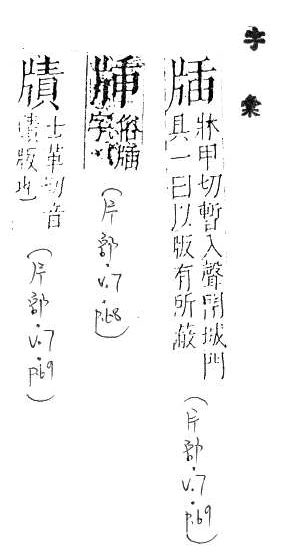 字彙
牐
牀甲切暫入聲閘城門
具一曰以版有所蔽
(片部·v.7·p.69)
俗牐
字
(片部·v.7·p.68)
士革切音
版也
(片部·v.7·p.69)